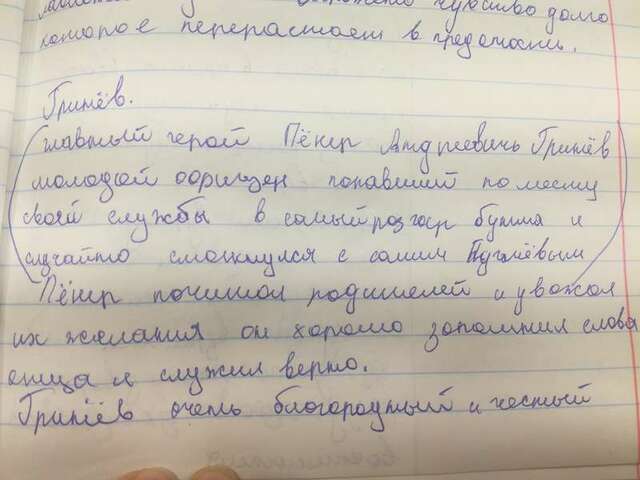 чувство долга
которое перерастает в преданность.
Гринёв.
(главный герой Пётр Андреевичь Гринёв
молодой офицер попавший по месту
своей службы в самый розгар бунта и
случайно столкнулся с самим Пугачёвым)
Пётр почитал родителей и уважал
их желания он хорошо запомнил слова
отца и служил верно.
Гринёв очень благородный и честный